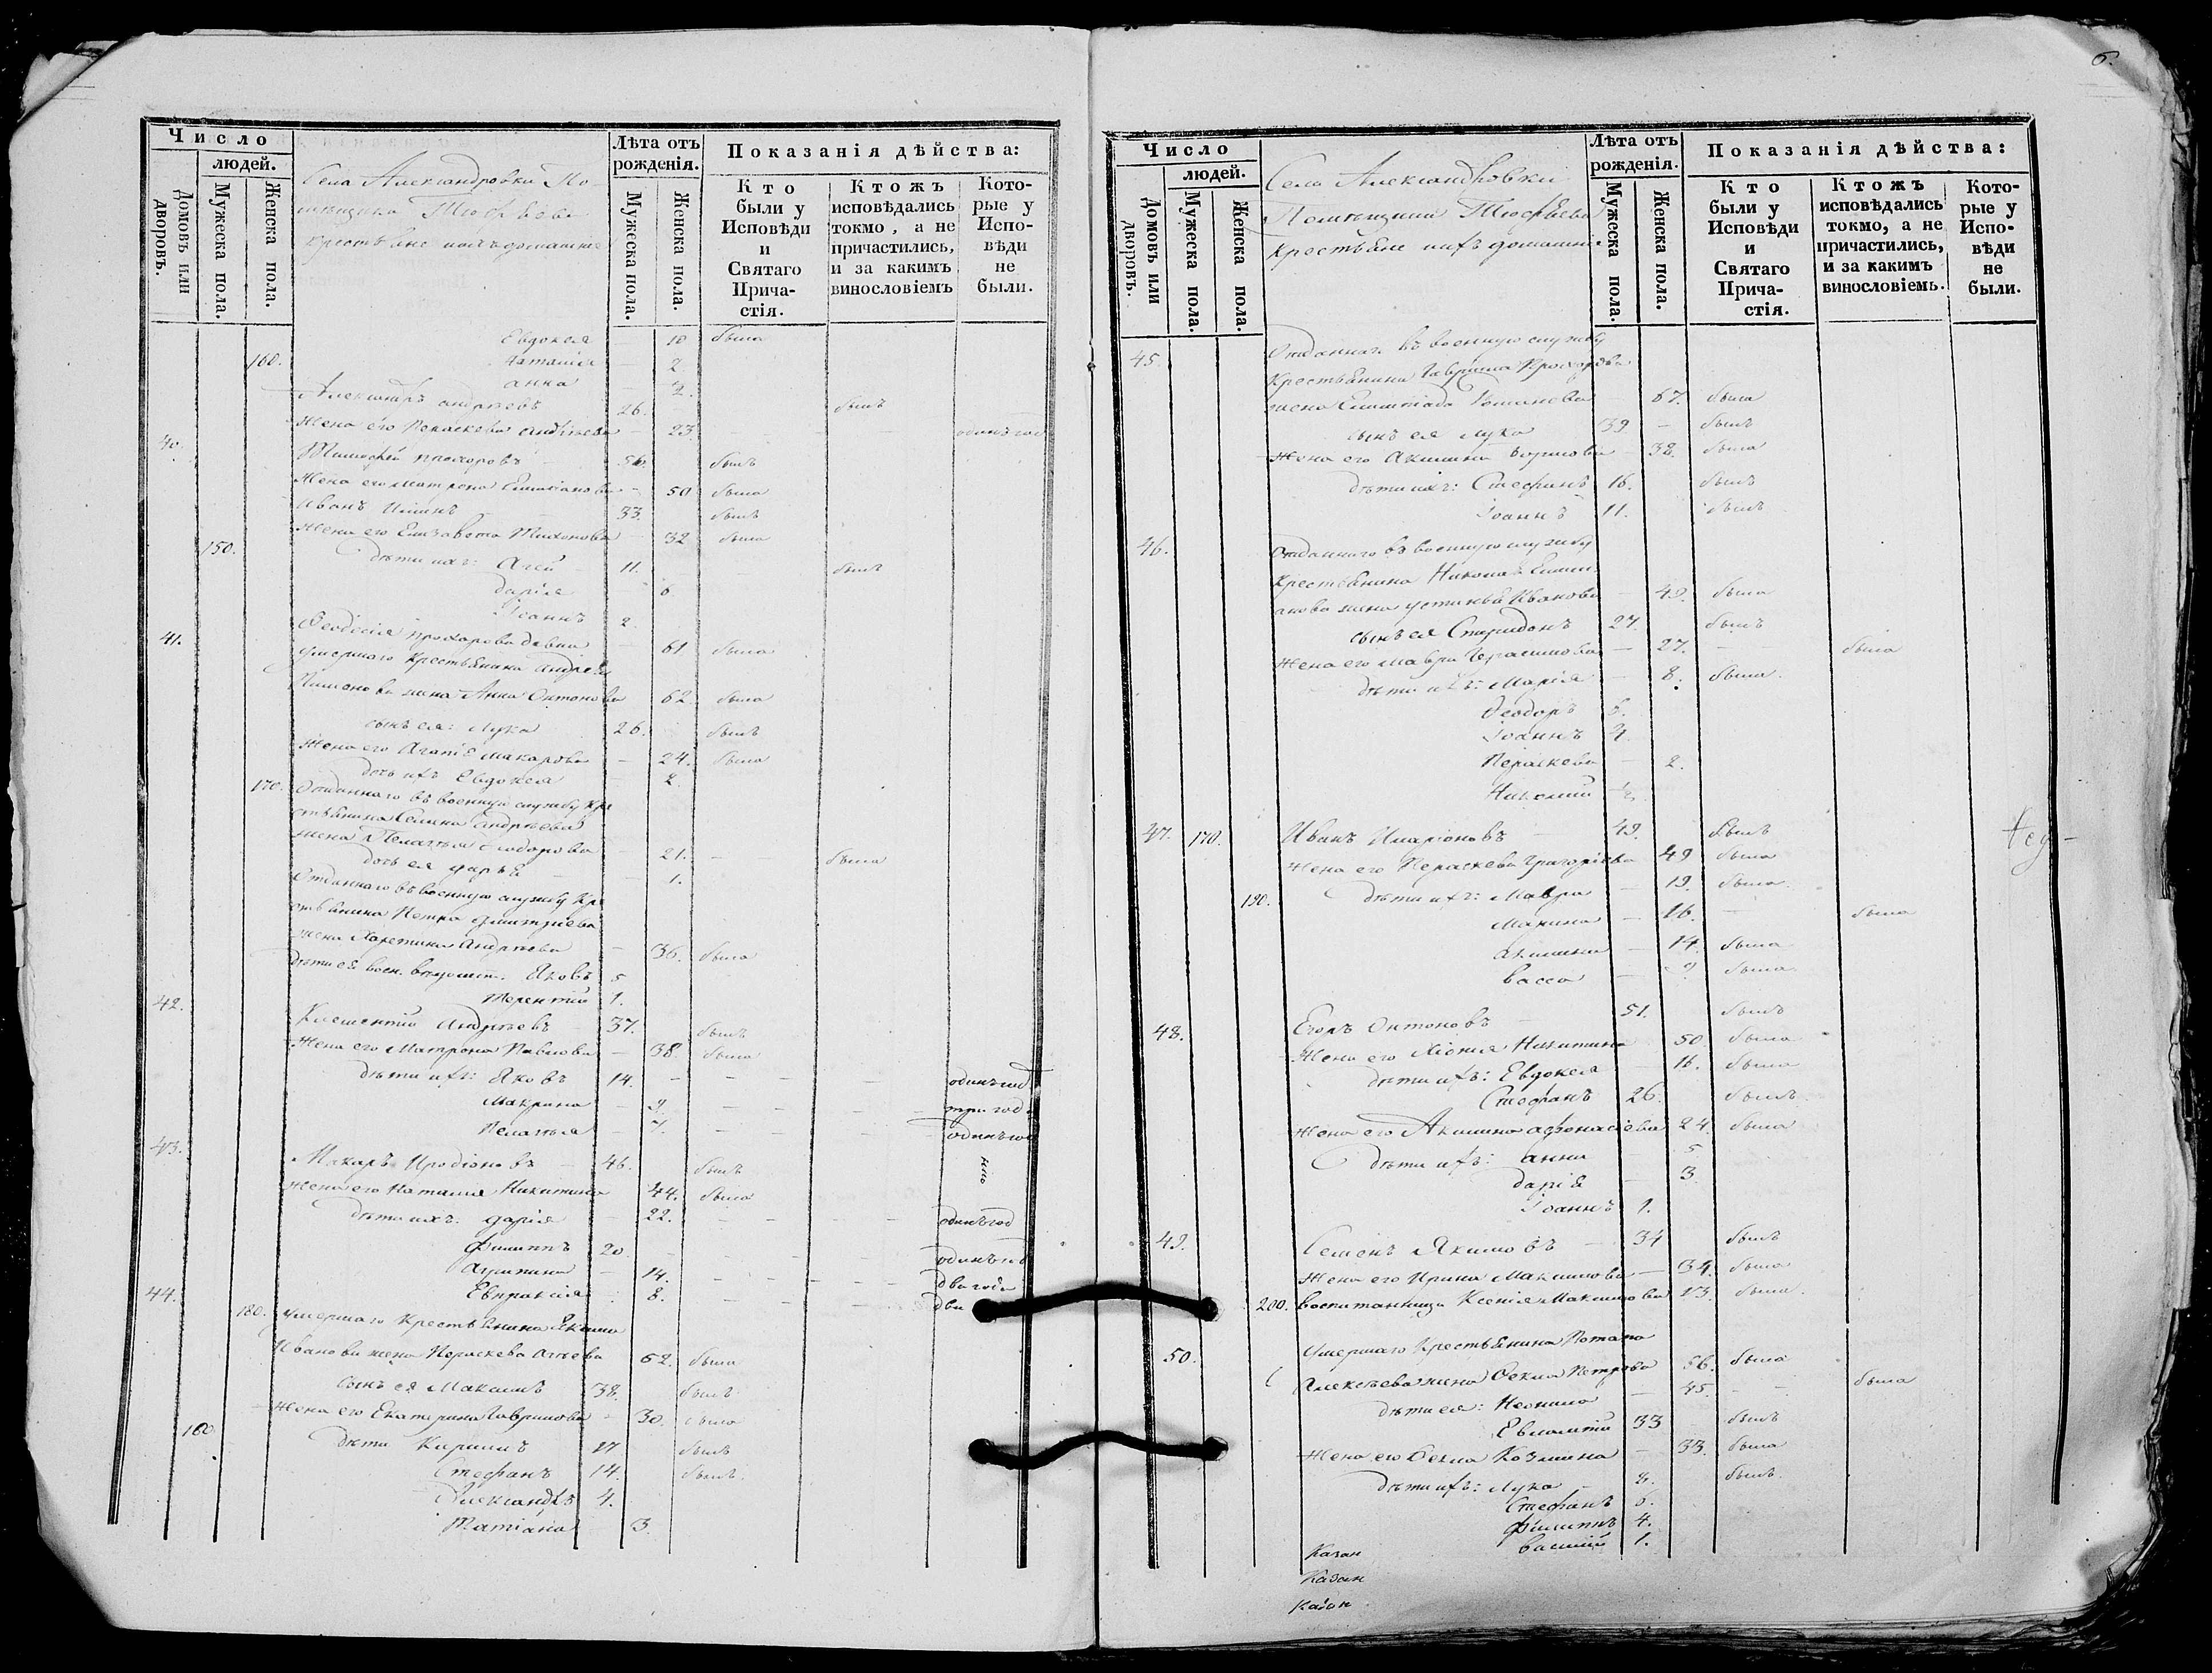 Число
людей.
Домовъ или дворовъ.
Мужеска пола.
Женска пола.
Села Александровки По-
мѣщика
Крестьяне ихъ домашніе
Лѣта отъ рожденія.
Мужеска пола.
Женска пола.
Показанія дѣйства:
Кто были у Исповѣди и Святаго Прича-стія.
Ктожъ исповѣдались токмо, а не причастились, и за какимъ винословіемъ
Кото-рые у Испо-вѣди не были.
Евдокея 10 была
160. Наталія 2
анна 2.
Александръ андреевъ 26. былъ
Жена его Параскева 23. одинъ год
40. Тимофей прохоровъ 56. былъ
Жена его матрена Емилианова 50 была
Иванъ Ильинъ 33. былъ
Жена его Елизавета Тихонова 32 была
150. дѣти ихъ: 11. былъ
дарія 6
Іоаннъ 2.
41. Феодосія прохорова давна 61 была
умершаго Крестьянина андрея
жена Анна Онтонова 62. была
сынъ ея: Лука 26. былъ
Жена его Агапія макарова 24. была
дочь ихъ Евдокея 2.
170. Отданнаго въ военную службу Кре
стьянина андреева
жена Пелагея Феодорова 21. была
дочь ея дарья 1.
Отданнаго въ военную службу Кре
стьянина Петра Дмитріева
жена Харетина Андреева 36. была
дѣти ея Яковъ 5
Терентій 1.
42. Климентій Андреевъ 37. былъ
Жена его Матрона Павлова 38. была
дѣти ихъ: Яковъ 14. одинъ год
Макрина 9. три года
Пелагея 7. одинъ год
43. Макаръ Иродіоновъ 46. былъ
Жена его Наталия Никитина 44. была
дѣти ихъ: дарія 22. одинъ год
Филиппъ 20. одинъ год
Агрипина 14. два года
Евпраксія 8. два
44. 180. умершаго Крестьянина Якима
Иванова жена Параскева 62. была
сынъ ея Максимъ 38. былъ
Жена его Екатерина Гаврилова 30. была
160. дѣти Кирилъ 17 былъ
Стефанъ 14. былъ.
Александръ 4.
Татіана 3.
6.
Число
людей.
Домовъ или дворовъ.
Мужеска пола.
Женска пола.
Села Александровки
Помѣщика
Крестьяне ихъ домашніе
Лѣта отъ рожденія.
Мужеска пола.
Женска пола.
Показанія дѣйства:
Кто были у Исповѣди и Святаго Прича-стія.
Ктожъ исповѣдались токмо, а не причастились, и за какимъ винословіемъ.
Кото-рые у Испо-вѣди не были.
45. Отданнаго въ военную службу
Крестьянина Гаврила Прохорова
жена 67. была
сынъ ея Лука 39 былъ
Жена его Акилина 38. была
дѣти ихъ: Стефанъ 16. былъ
Іоаннъ 11. былъ
46. Отданнаго въ военную службу
Крестьянина Николая Емили
анова жена устинья Иванова 49. была
сынъ ея Спиридонъ 27. былъ
Жена его мавра Герасимова 27. была
дѣти ихъ: Марія 8. была.
Феодоръ
Іоаннъ 4
Параскева 2.
Николай
47. 170. Иванъ Иларіоновъ 49. былъ
Жена его Параскева Григоріева 49 была
190. дѣти ихъ: Мавра 19. была.
Марина 16. была
акилина 14. была
васса 9 была.
48. Егоръ Онтоновъ 51. былъ
Жена его Хіонія Никитина 50. была
дѣти ихъ: Евдокея 16. была
Стефанъ 26. былъ
Жена его Акилина афонасіева 24. была
дѣти ихъ: анна 5
дарія 3.
Іоаннъ 1.
49. Семенъ Якимовъ 34 былъ
Жена его Ирина Максимова 34. была
200. воспитанница Ксенія Максимова 13. была.
50. Умершаго Крестьянина Потапа
Алексѣева жена Фекла Петрова 56. была
дѣти ея: Неонила 45. была
Евлампій 33 былъ
Жена его Фекла Козмина 33. была
дѣти ихъ: Лука 8. былъ.
Стефанъ
Филиппъ 4.
василій 1.
Казан
Казан
Казан